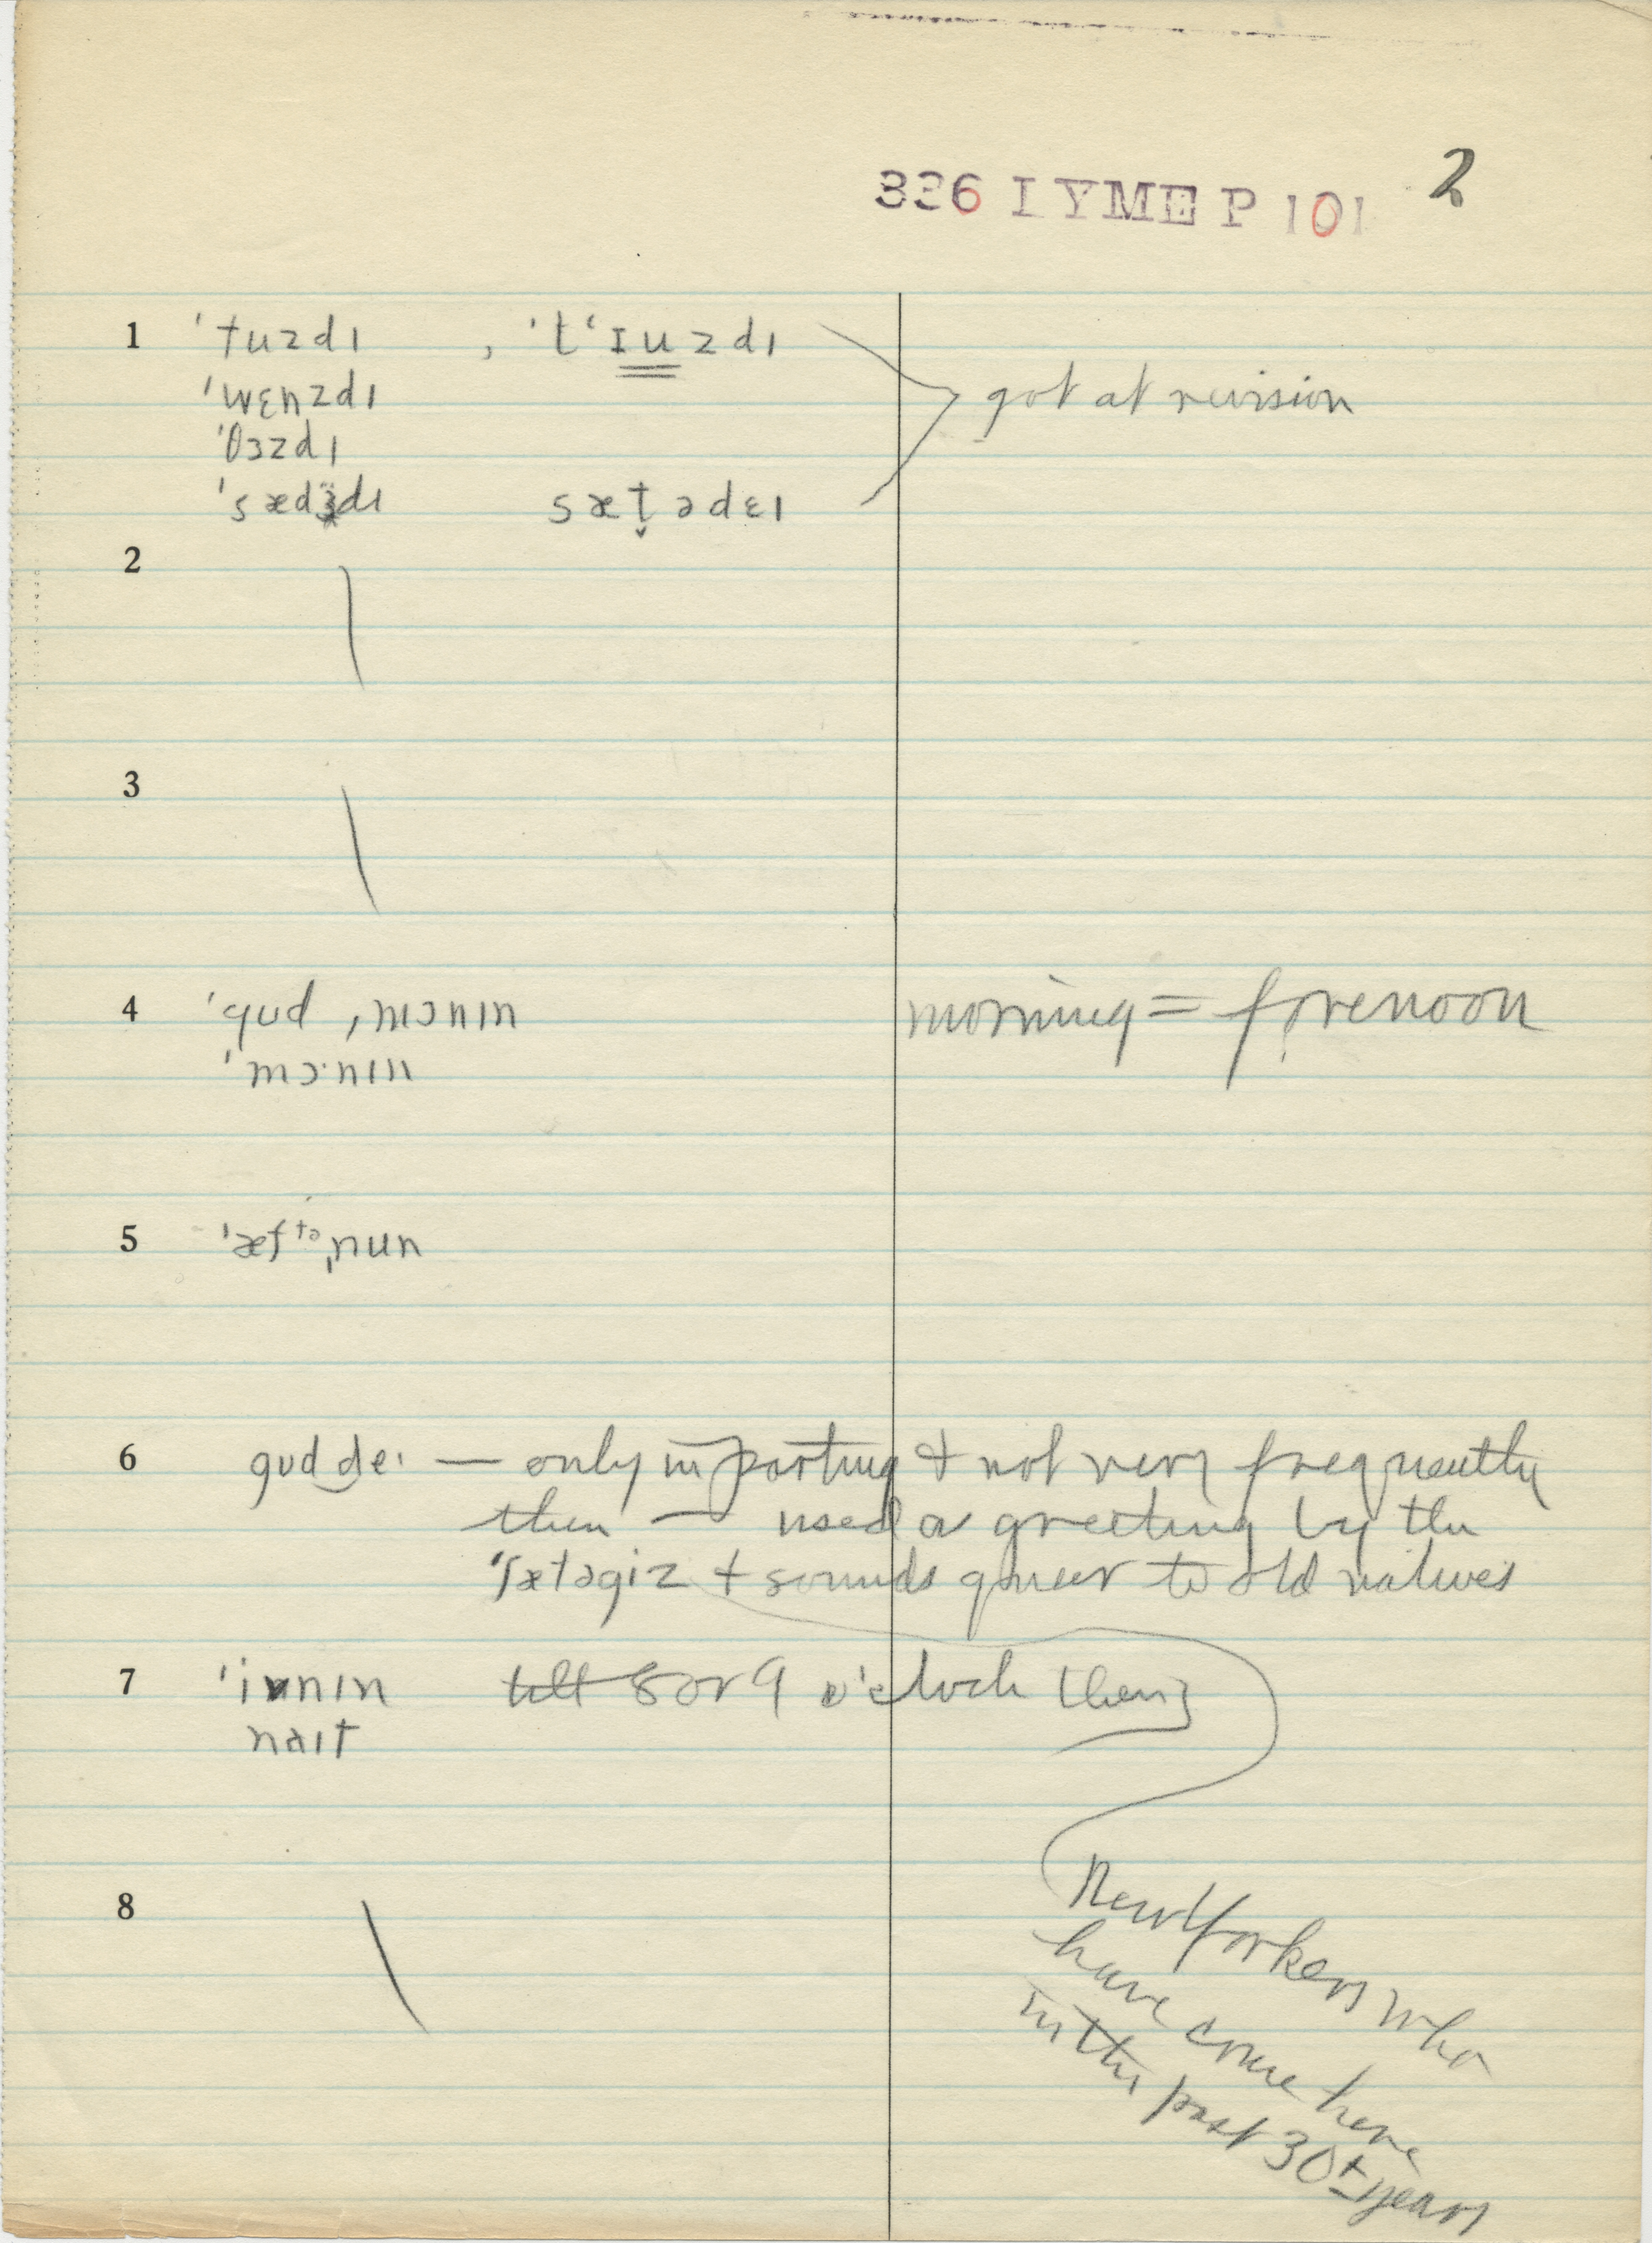 336 I Y ME P 101 2
1 'tuzdɪ , 't‘ɪuzdɪ
'wɛnzdɪ
got at revision
'θɜzdɪ
'sædɜdɪ sæt̬ədɛɪ
2
3
4 'gud ,mɔnɪn morning = forenoon
'mɔ·nɪn
5 'æftə,nun
6 gud de· — only in parting & not very frequently
then — used as greeting by the
'sætəgiz + sounds queer to old natives
7 'ivnɪn till 8 or 9 o'clock then
naɪt
8
New Yorkers who
have come here
in the past 30± years